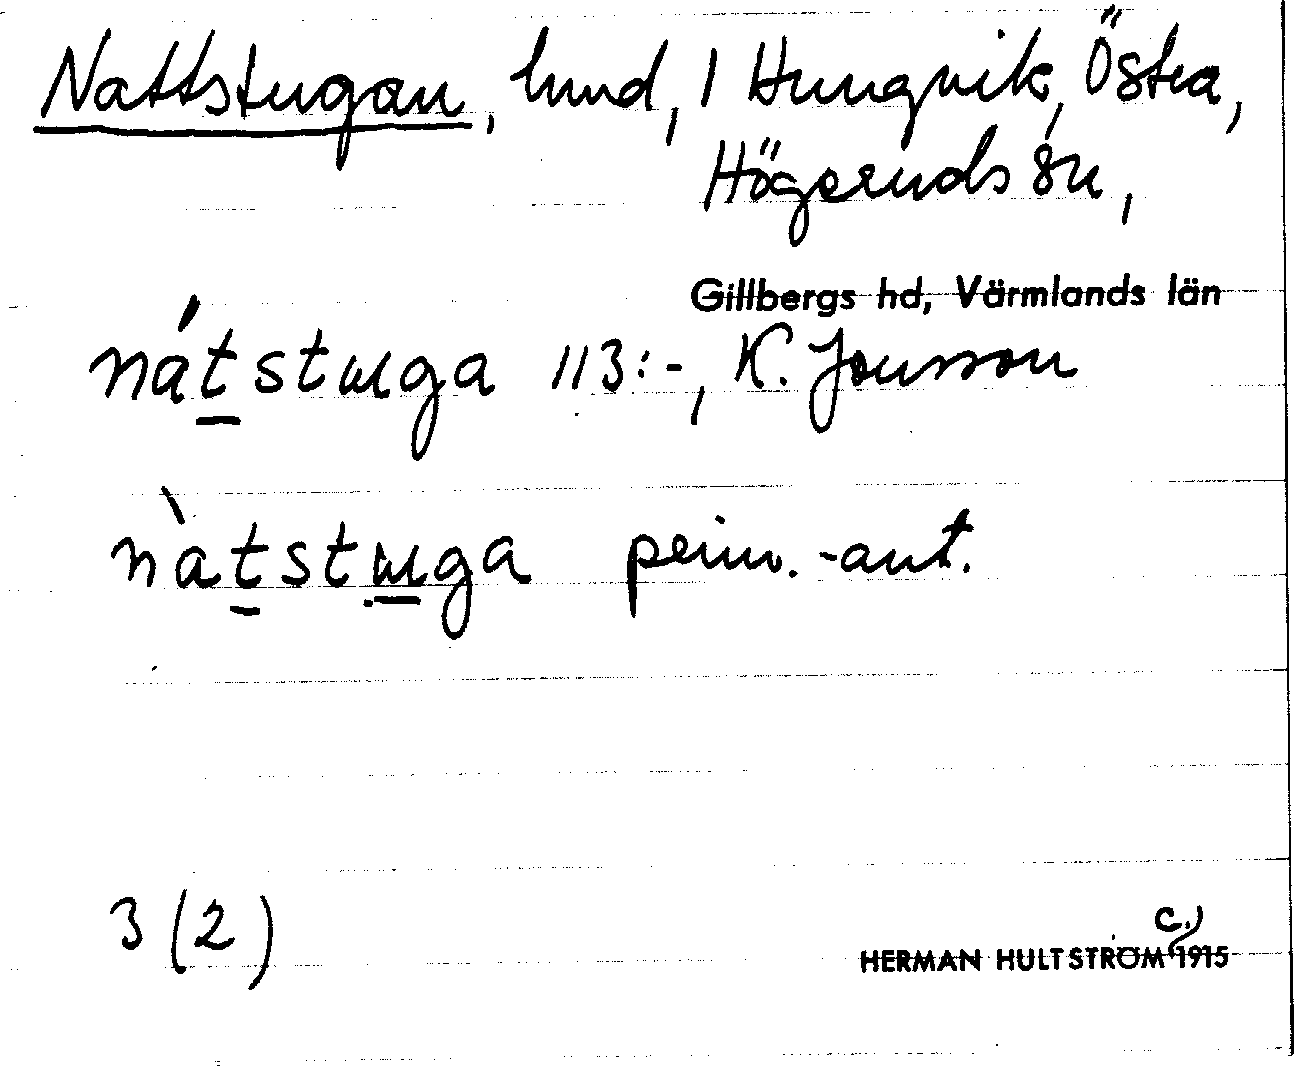 Nattstugan, lund, 1 Hungvik, Östra,
Högeruds sn,
Gillbergs hd, Värmlands län
nátstɯga 113:-, K. Jonsson
nàtstɯga prim.-ant.
3 (2)
HERMAN HULTSTRÖM c. 1915